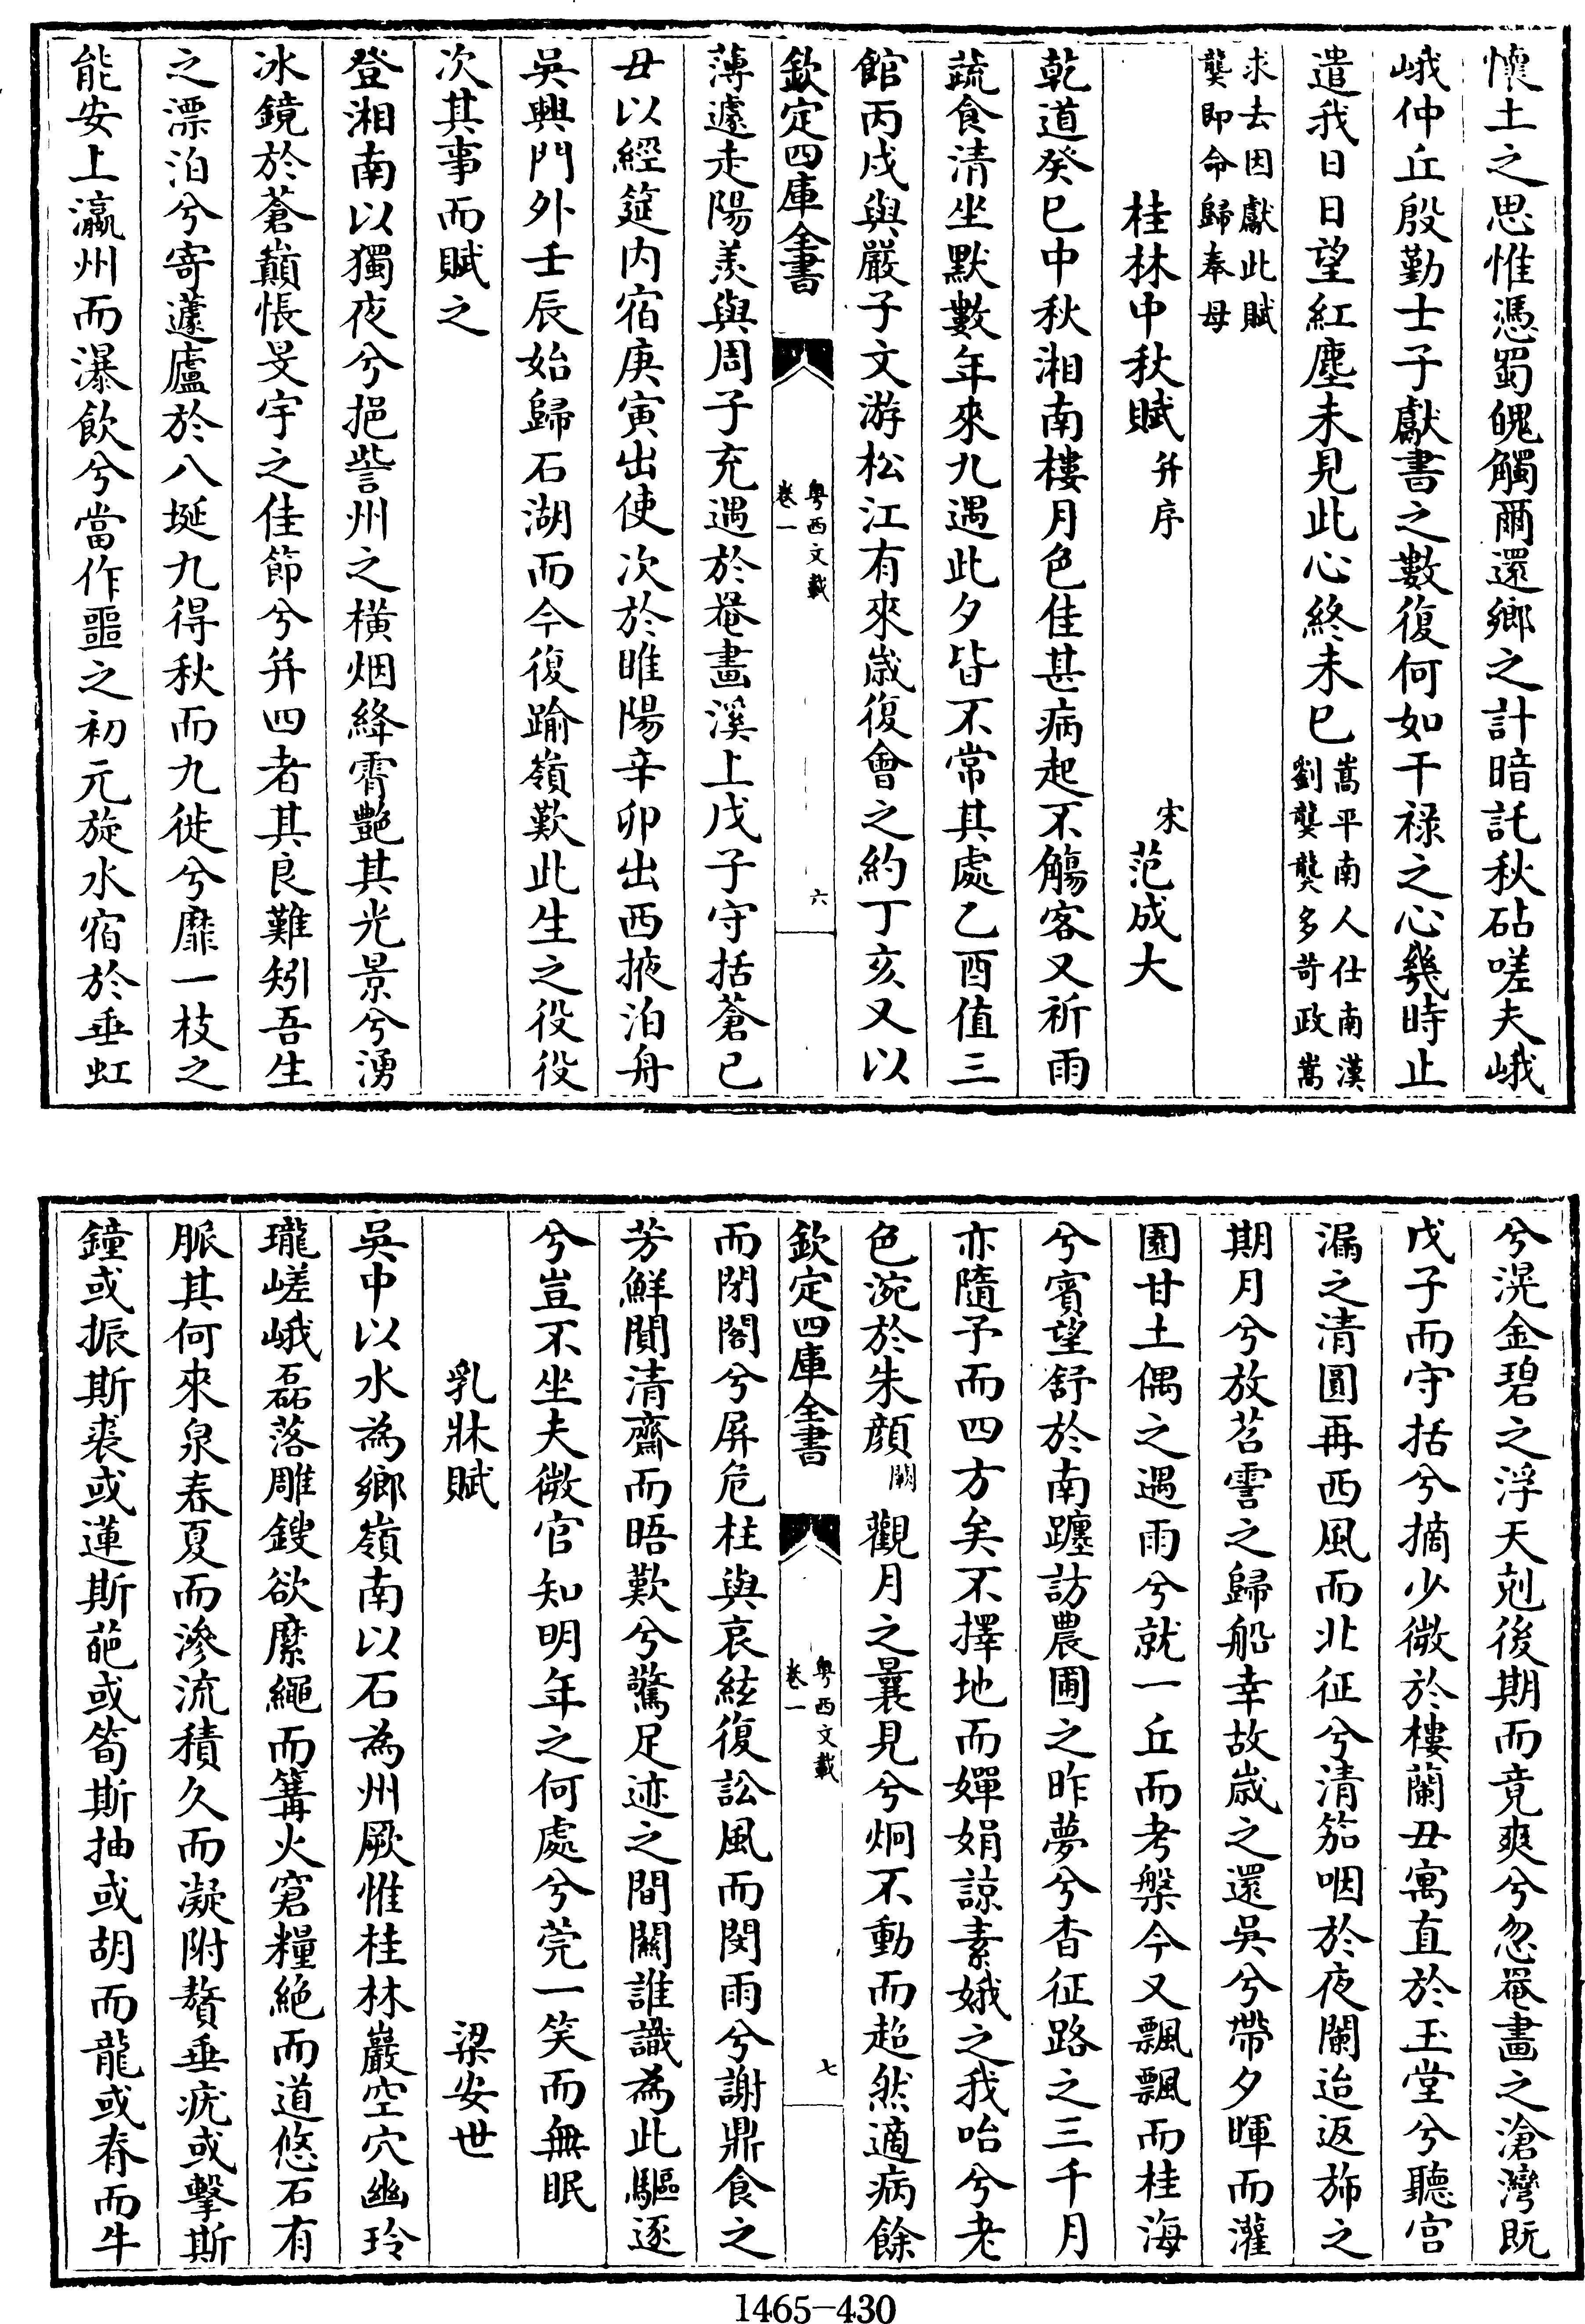 懷土之思惟憑蜀魄觸爾還鄉之計暗託秋砧嗟夫峨
峨仲丘殷勤士子獻書之數復何如干祿之心幾時止
遣我日日望紅塵未見此心終未已嵩平南人仕南漢劉龑龑多苛政嵩
求去因獻此賦龑即命歸奉母
桂林中秋賦并序 宋范成大
乾道癸巳中秋湘南樓月色佳甚病起不觴客又祈雨
蔬食清坐默數年來九遇此夕皆不常其處乙酉值三
館丙戌與嚴子文游松江有來歲復會之約丁亥又以
欽定四庫全書 粵西文載卷一 六
薄遽走陽羨與周子充遇於罨畫溪上戊子守括蒼已
丑以經筵内宿庚寅出使次於睢陽辛卯出西掖泊舟
吳興門外壬辰始歸石湖而今復踰嶺歎此生之役役
次其事而賦之
登湘南以獨夜兮挹訾州之橫烟絳霄艷其光景兮湧
冰鏡於蒼巔悵旻宇之佳節兮并四者其良難矧吾生
之漂泊兮寄蘧廬於八埏九得秋而九徙兮靡一枝之
能安上瀛州而瀑飲兮當作噩之初元旋水宿於垂虹
兮滉金碧之浮天剋後期而竟爽兮忽罨畫之滄灣既
戊子而守括兮摘少微於樓蘭丑寓直於玉堂兮聽宫
漏之清圓再西風而北征兮清笳咽於夜闌迨返旆之
期月兮放苕霅之歸船幸故歲之還吳兮帶夕暉而灌
園甘土偶之遇雨兮就一丘而考槃今又飄飄而桂海
兮賓望舒於南躔訪農圃之昨夢兮杳征路之三千月
亦隨予而四方矣不擇地而嬋娟諒素娥之我咍兮老
色涴於朱顔闕觀月之曩見兮炯不動而超然適病餘
欽定四庫全書 粵西文載卷一 七
而閉閤兮屏危柱與哀絃復訟風而閔雨兮謝鼎食之
芳鮮閴清齋而晤歎兮驚足迹之間關誰識為此驅逐
兮豈不坐夫微官知明年之何處兮莞一笑而無眠
乳牀賦 梁安世
吳中以水為鄉嶺南以石為州厥惟桂林巖空穴幽玲
瓏嵯峨磊落雕鎪欲縻繩而篝火窘糧絶而道悠石有
脈其何來泉春夏而滲流積久而凝附贅垂疣或擊斯
鐘或振斯裘或蓮斯葩或筍斯抽或胡而龍或脊而牛
1465－430